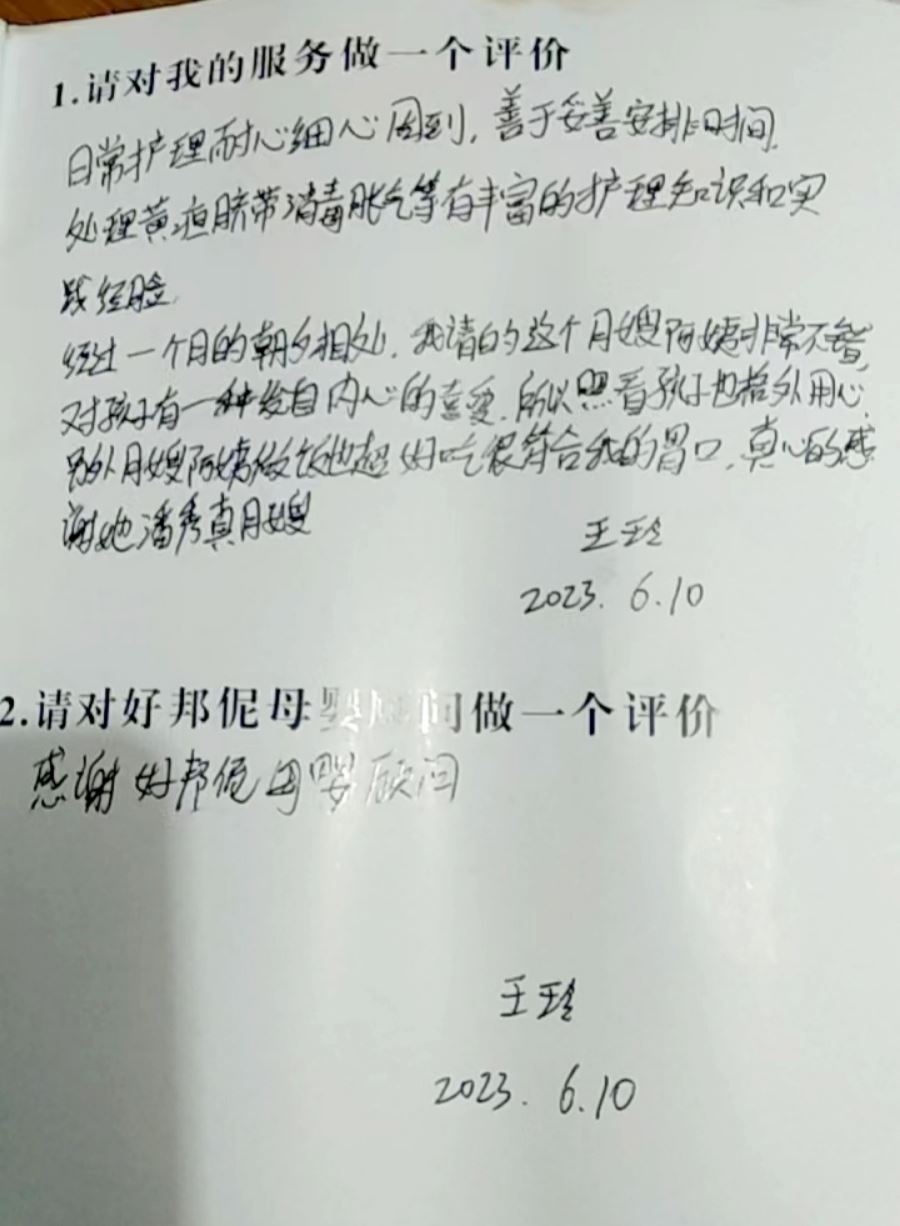 1.请对我的服务做一个评价
日常护理耐心细心周到,善于妥善安排时间,
处理黄疸脐带消毒胀气等有丰富的护理知识和实
践经验,
经过一个月的朝夕相处,我请的这个月嫂阿姨非常不错,
对孩子有一种发自内心的喜爱,所以照看孩子也格外用心
另外月嫂阿姨做饭也超好吃很符合我的胃口,真心的感
谢她潘秀真月嫂
王玲
2023.6.10
2.请对好邦伲母婴顾问做一个评价
感谢好帮伲母婴顾问
王玲
2023.6.10